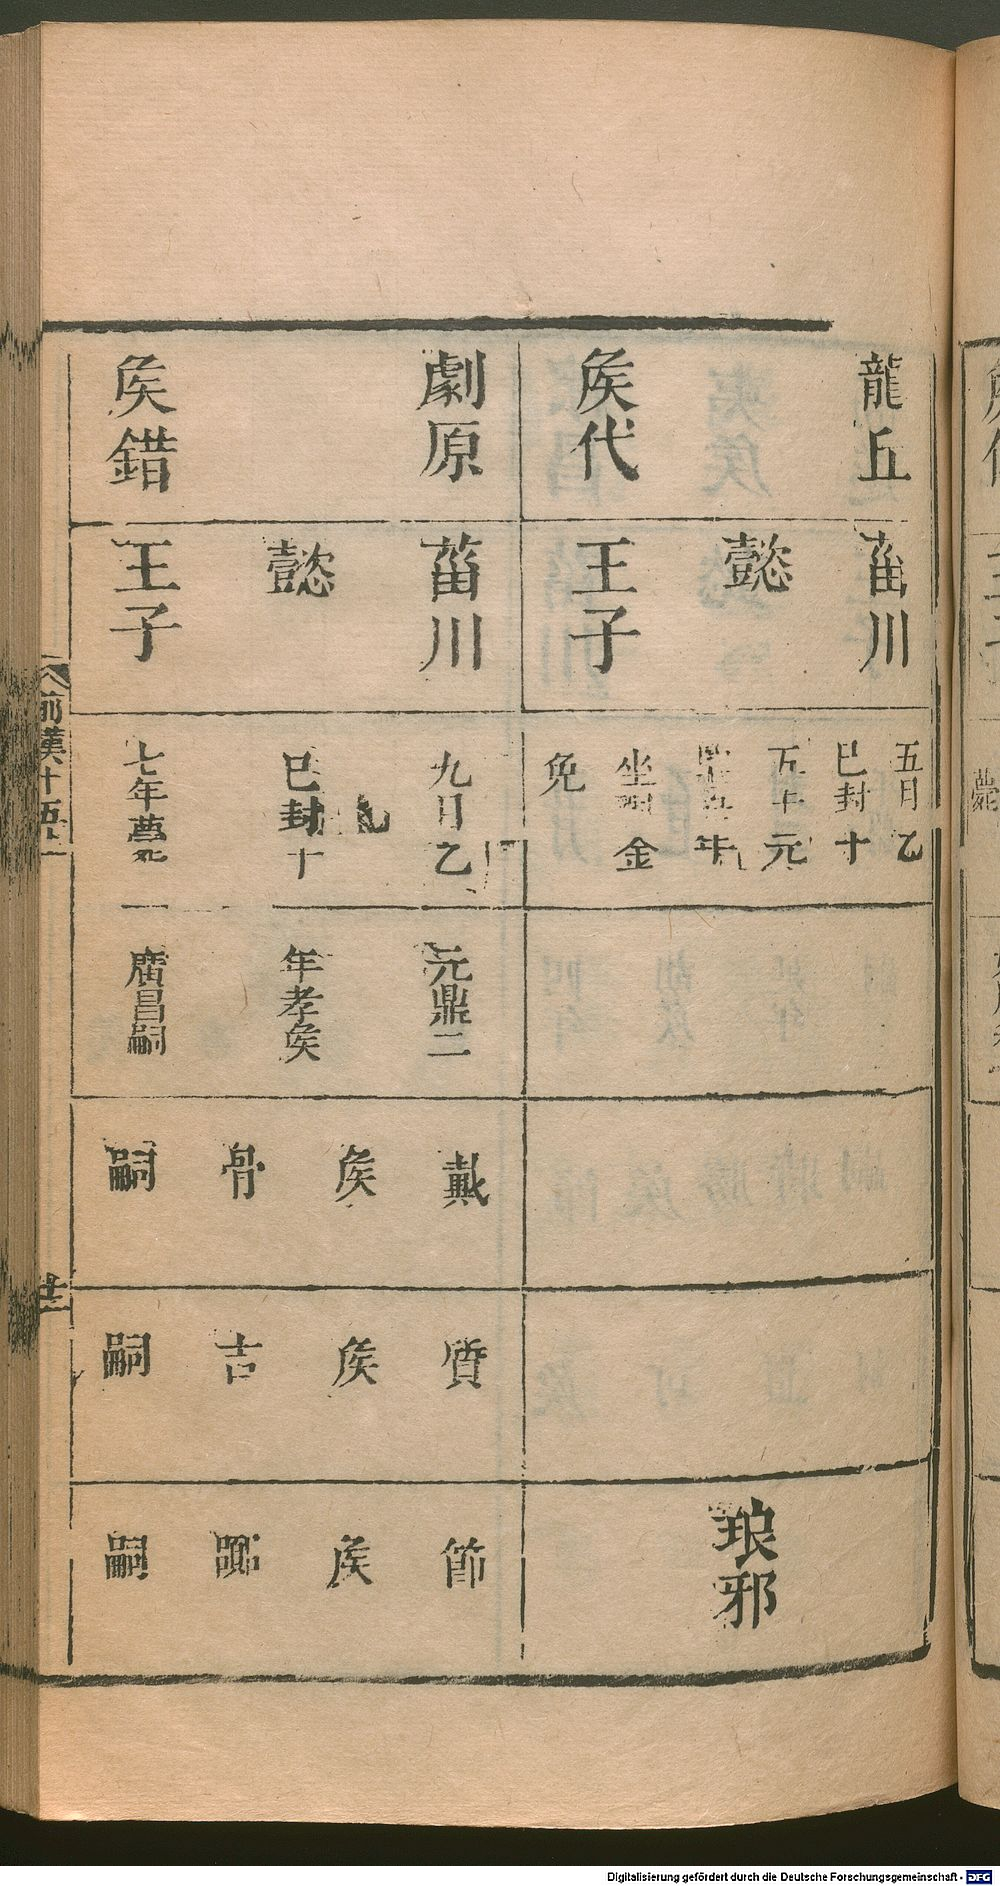 龍丘
侯代
菑川
懿
王子
五月乙
巳封十
五年元
年
坐酎金
免
琅邪
劇原
侯錯
菑川
懿
王子
九
月乙
巳封十
七年薨
元鼎二
年孝侯
廣昌嗣
戴侯骨嗣
質侯吉嗣
節侯嗣
前漢十五上
廿一
Digitalisierung gefördert durch die Deutsche Forschungsgemeinschaft - DFG